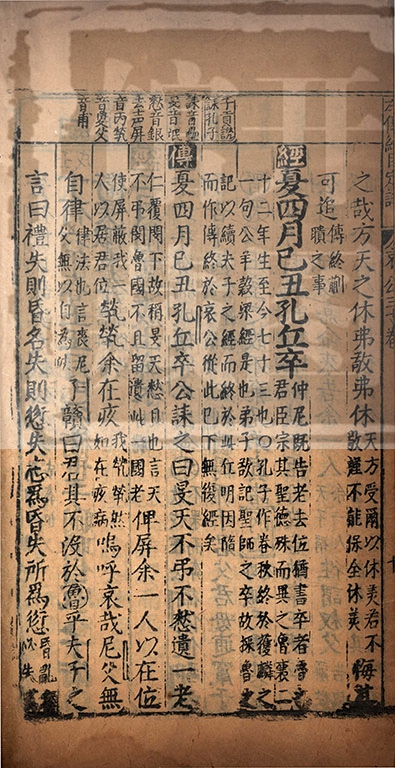 之哉方天之休弗敢弗休天方受爾以休美君不敢雖不能保全休美悔其
可追傳終蒯聵之事
經夏四月己丑孔丘卒仲尼既告老去位猶書卒者魯之君臣宗其聖德殊而異之魯襄二
十二年生至今七十三也〇孔子作春秋終於獲麟之
一句公羊穀梁經是也弟子欲記聖師之卒故採魯史
記以續夫子之經而終於此丘明因隨
而作傳終於哀公從此已下無復經矣
子貢說
誄孔子
誄音壘
旻音
憗音銀
去聲屏
音丙煢
音父
音甫
傳夏四月己丑孔丘卒公誄之曰旻天不弔不憗遺一老
仁覆閔下故稱旻天憗且也言天不弔閔魯國不且留遺此一國老俾屏余一人以在位
使屏蔽我一人以君位煢煢余在疚我煢煢然如在疚病嗚呼哀哉尼父無
自律律法也言喪尼父無以自為法子贛曰君其不沒於魯乎夫子之
言曰禮失則昏名失則愆失志為昏失所為愆昏亂失